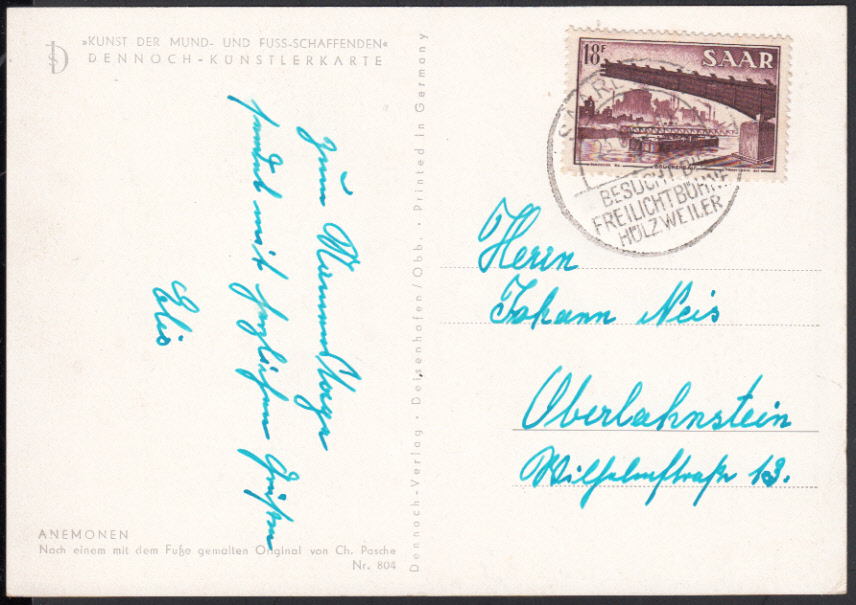 »KUNST DER MUND- UND FUSS-SCHAFFENDEN«
DENNOCH-KÜNSTLERKARTE
Zum Namenstage
sendet mit herzlichen Grüßen
Elis
ANEMONEN
Nach einem mit dem Fuße gemalten Original von Ch. Pasche
Nr. 804
Dennoch-Verlag · Deisenhofen/Obb. · Printed in Germany
18F
SAAR
BESUCHT DIE
FREILICHTBÜHNE
HÜLZWEILER
Herrn
Johann Neis
Oberlahnstein
Wilhelmstraße 13.